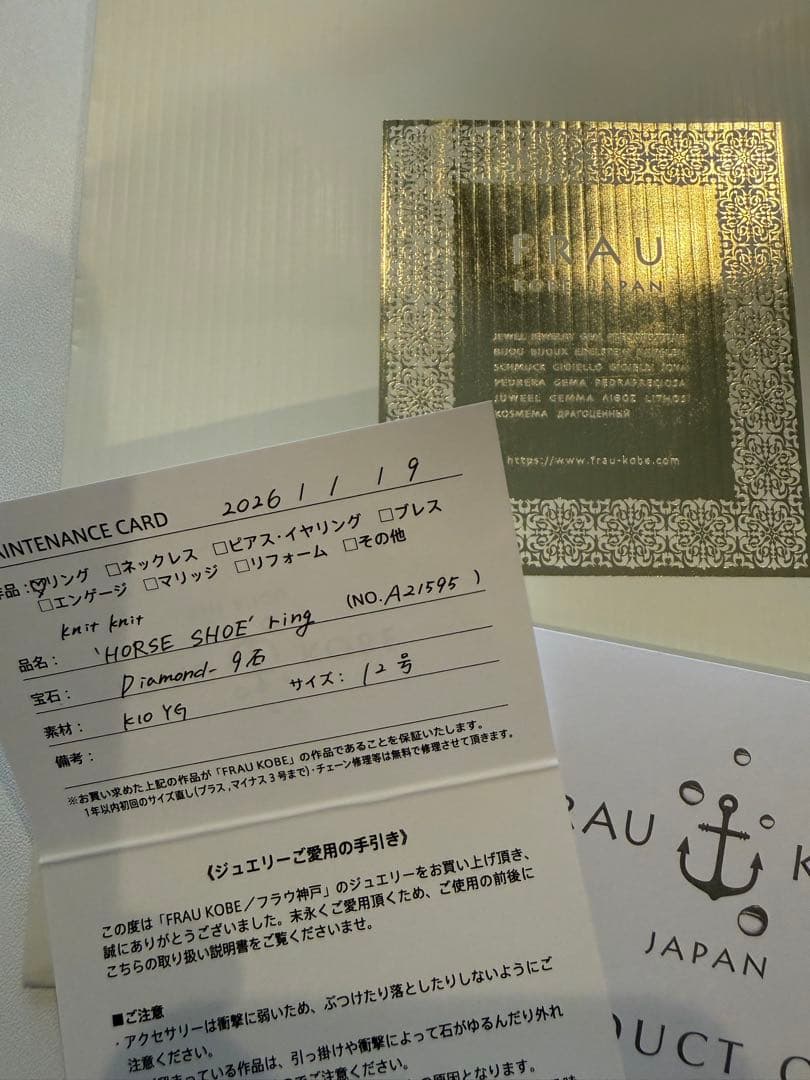 FRAU
KOBE JAPAN
JEWEL JEWELRY
BIJOU BIJOUX EDELSTEIN
SCHMUCK GIOIELLO GIOIELLI JOYA
PEDRERA GEMA PEDRAPRECIOSA
JUWEEL GEMMA
KOSMEMA ДРАГОЦЕННЫЙ
https://www.frau-kobe.com
AINTENANCE CARD 2026 / 1 / 19
作品:☑リング □ネックレス □ピアス・イヤリング □ブレス
□エンゲージ □マリッジ □リフォーム □その他
knit knit
品名: 'HORSE SHOE' ring (NO. A21595 )
宝石: Diamond- 9石
素材: K10 YG サイズ: 12号
備考:
※お買い求めた上記の作品が「FRAU KOBE」の作品であることを保証いたします。
1年以内初回のサイズ直し(プラス,マイナス3号まで)・チェーン修理等は無料で修理させて頂きます。
《ジュエリーご愛用の手引き》
この度は「FRAU KOBE/フラウ神戸」のジュエリーをお買い上げ頂き、
誠にありがとうございました。末永くご愛用頂くため、ご使用の前後に
こちらの取り扱い説明書をご覧くださいませ。
■ご注意
・アクセサリーは衝撃に弱いため、ぶつけたり落としたりしないようにご
注意ください。
いる作品は、引っ掛けや衝撃によって石がゆるんだり外れ
でご注意ください。
の原因となります。
RAU K
JAPAN
DUCT